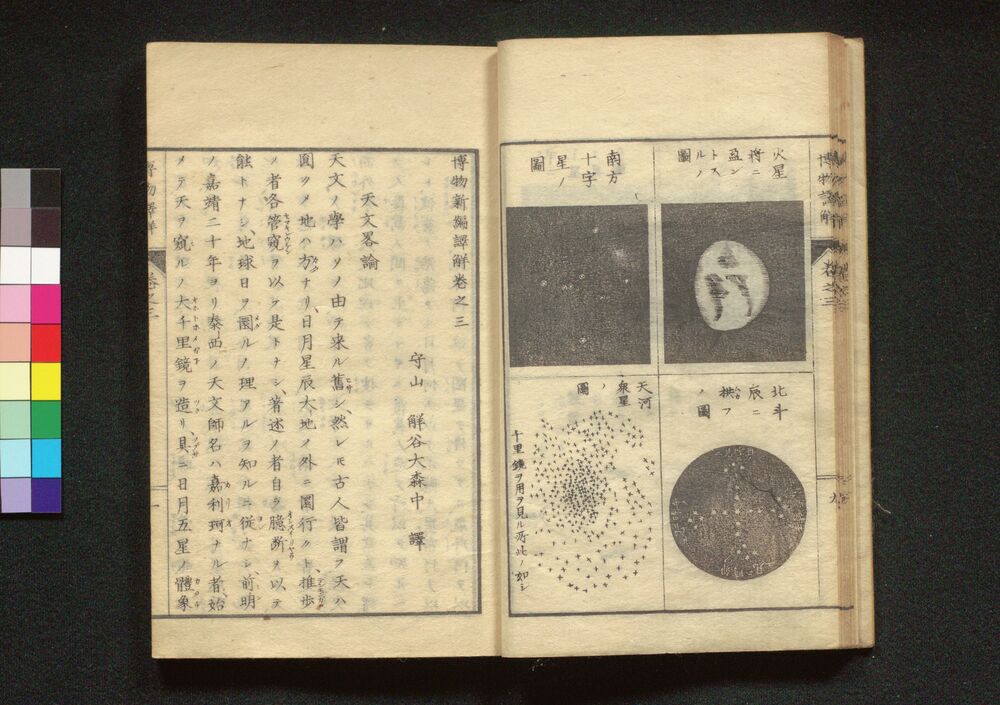 火星
將ニ
盈ン
トス
ルノ
圖
南方
十字
星ノ
圖
北斗
辰ニ
拱フ
ノ圖
天河
衆星
ノ
圖
千里鏡ヲ用ヲ見ル所此ノ如シ
博物新編譯解卷之三
守山 觧谷大森中 譯
天文畧論
天文ノ學ハソノ由テ来ル舊シ、然レ𪜈古人皆謂フ天ハ
圓クノ地ハ方ナリ、日月星辰大地ノ外ニ圜行クト、推歩
ノ者各管窺ヲ以テ是トナシ、著述ノ者自ラ臆断ヲ以テ
能トナシ、地球日ヲ圜ルノ理アルヲ知ルニ従ナシ、前明
ノ嘉靖二十年ヨリ泰西ノ天文師名ハ嘉利珂ナル者、始
メテ天ヲ窺ルノ大千里鏡ヲ造リ、具ニ日月五星ノ體象